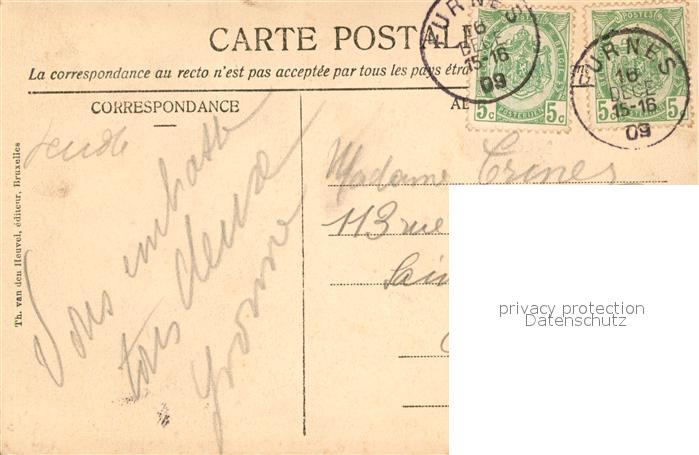 CARTE POSTALE
La correspondance au recto n'est pas acceptée par tous les pays étra
CORRESPONDANCE
AD
FURNES
16
DECE
15-16
09
POSTERIJEN
5c 5c
FURNES
16
DECE
15-16
09
POSTES
5c 5c
Jeudi
Vous embrasse
tous deux
Yvonne
Madame Crines
113 rue
Sain
Th. van den Heuvel, éditeur, Bruxelles
privacy protection
Datenschutz